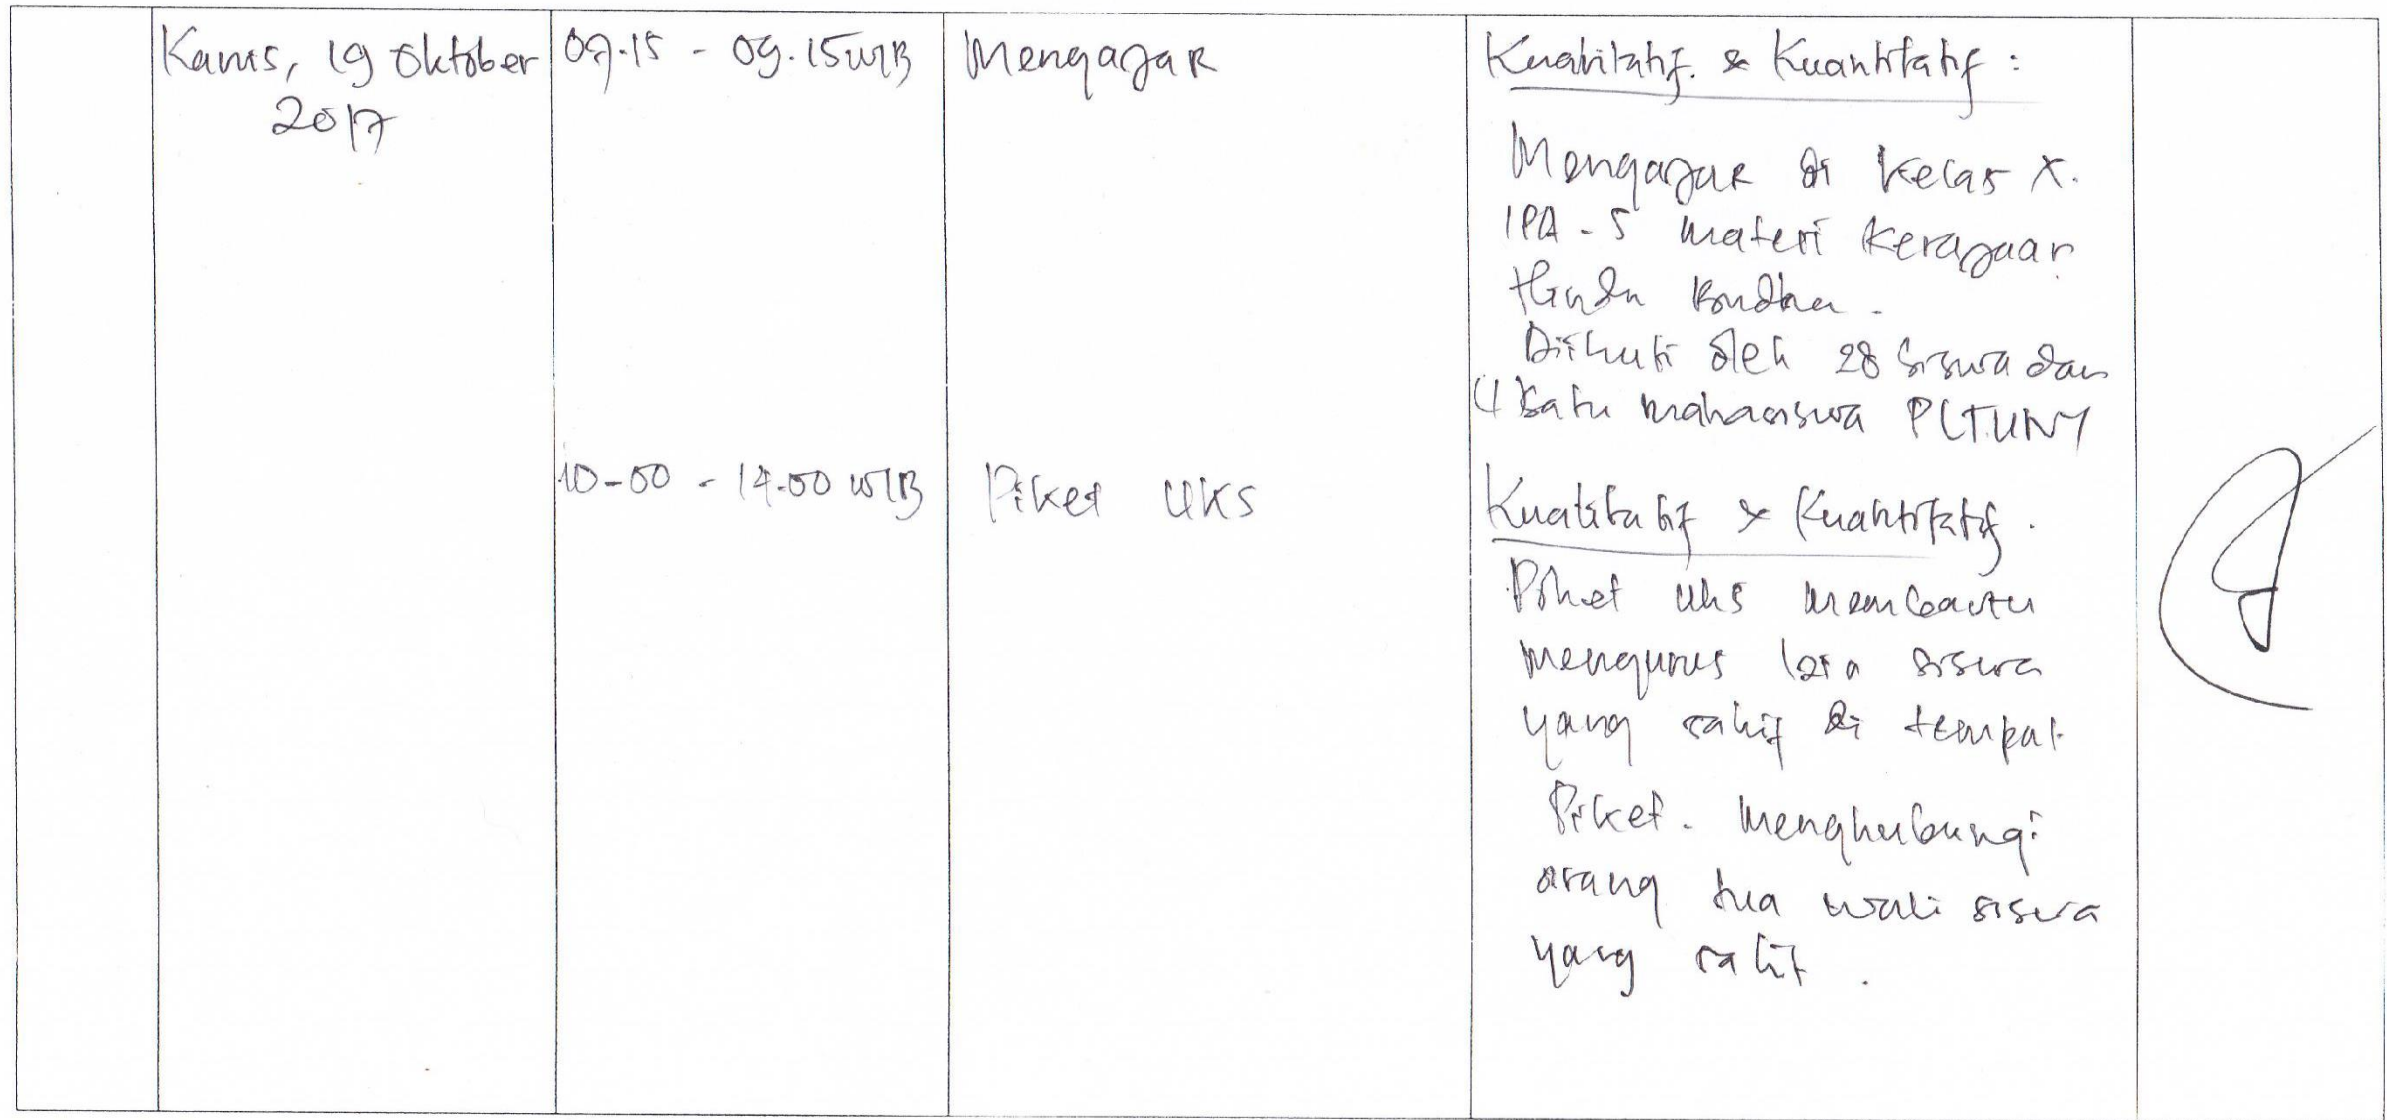 Kamis, 19 Oktober
2017
07.15 - 09.15 WIB
Mengajar
Kualitatif & Kuantitatif :
Mengajar di kelas X.
IPA - 5 materi kerajaan
Hindu Budha.
Diikuti oleh 28 siswa dan
(1) satu mahasiswa PLT UNY
10-00 - 14.00 WIB
Piket UKS
Kualitatif & Kuantitatif.
Piket UKS membantu
mengurus izin siswa
yang sakit di tempat
Piket. Menghubungi
orang tua wali siswa
yang sakit.